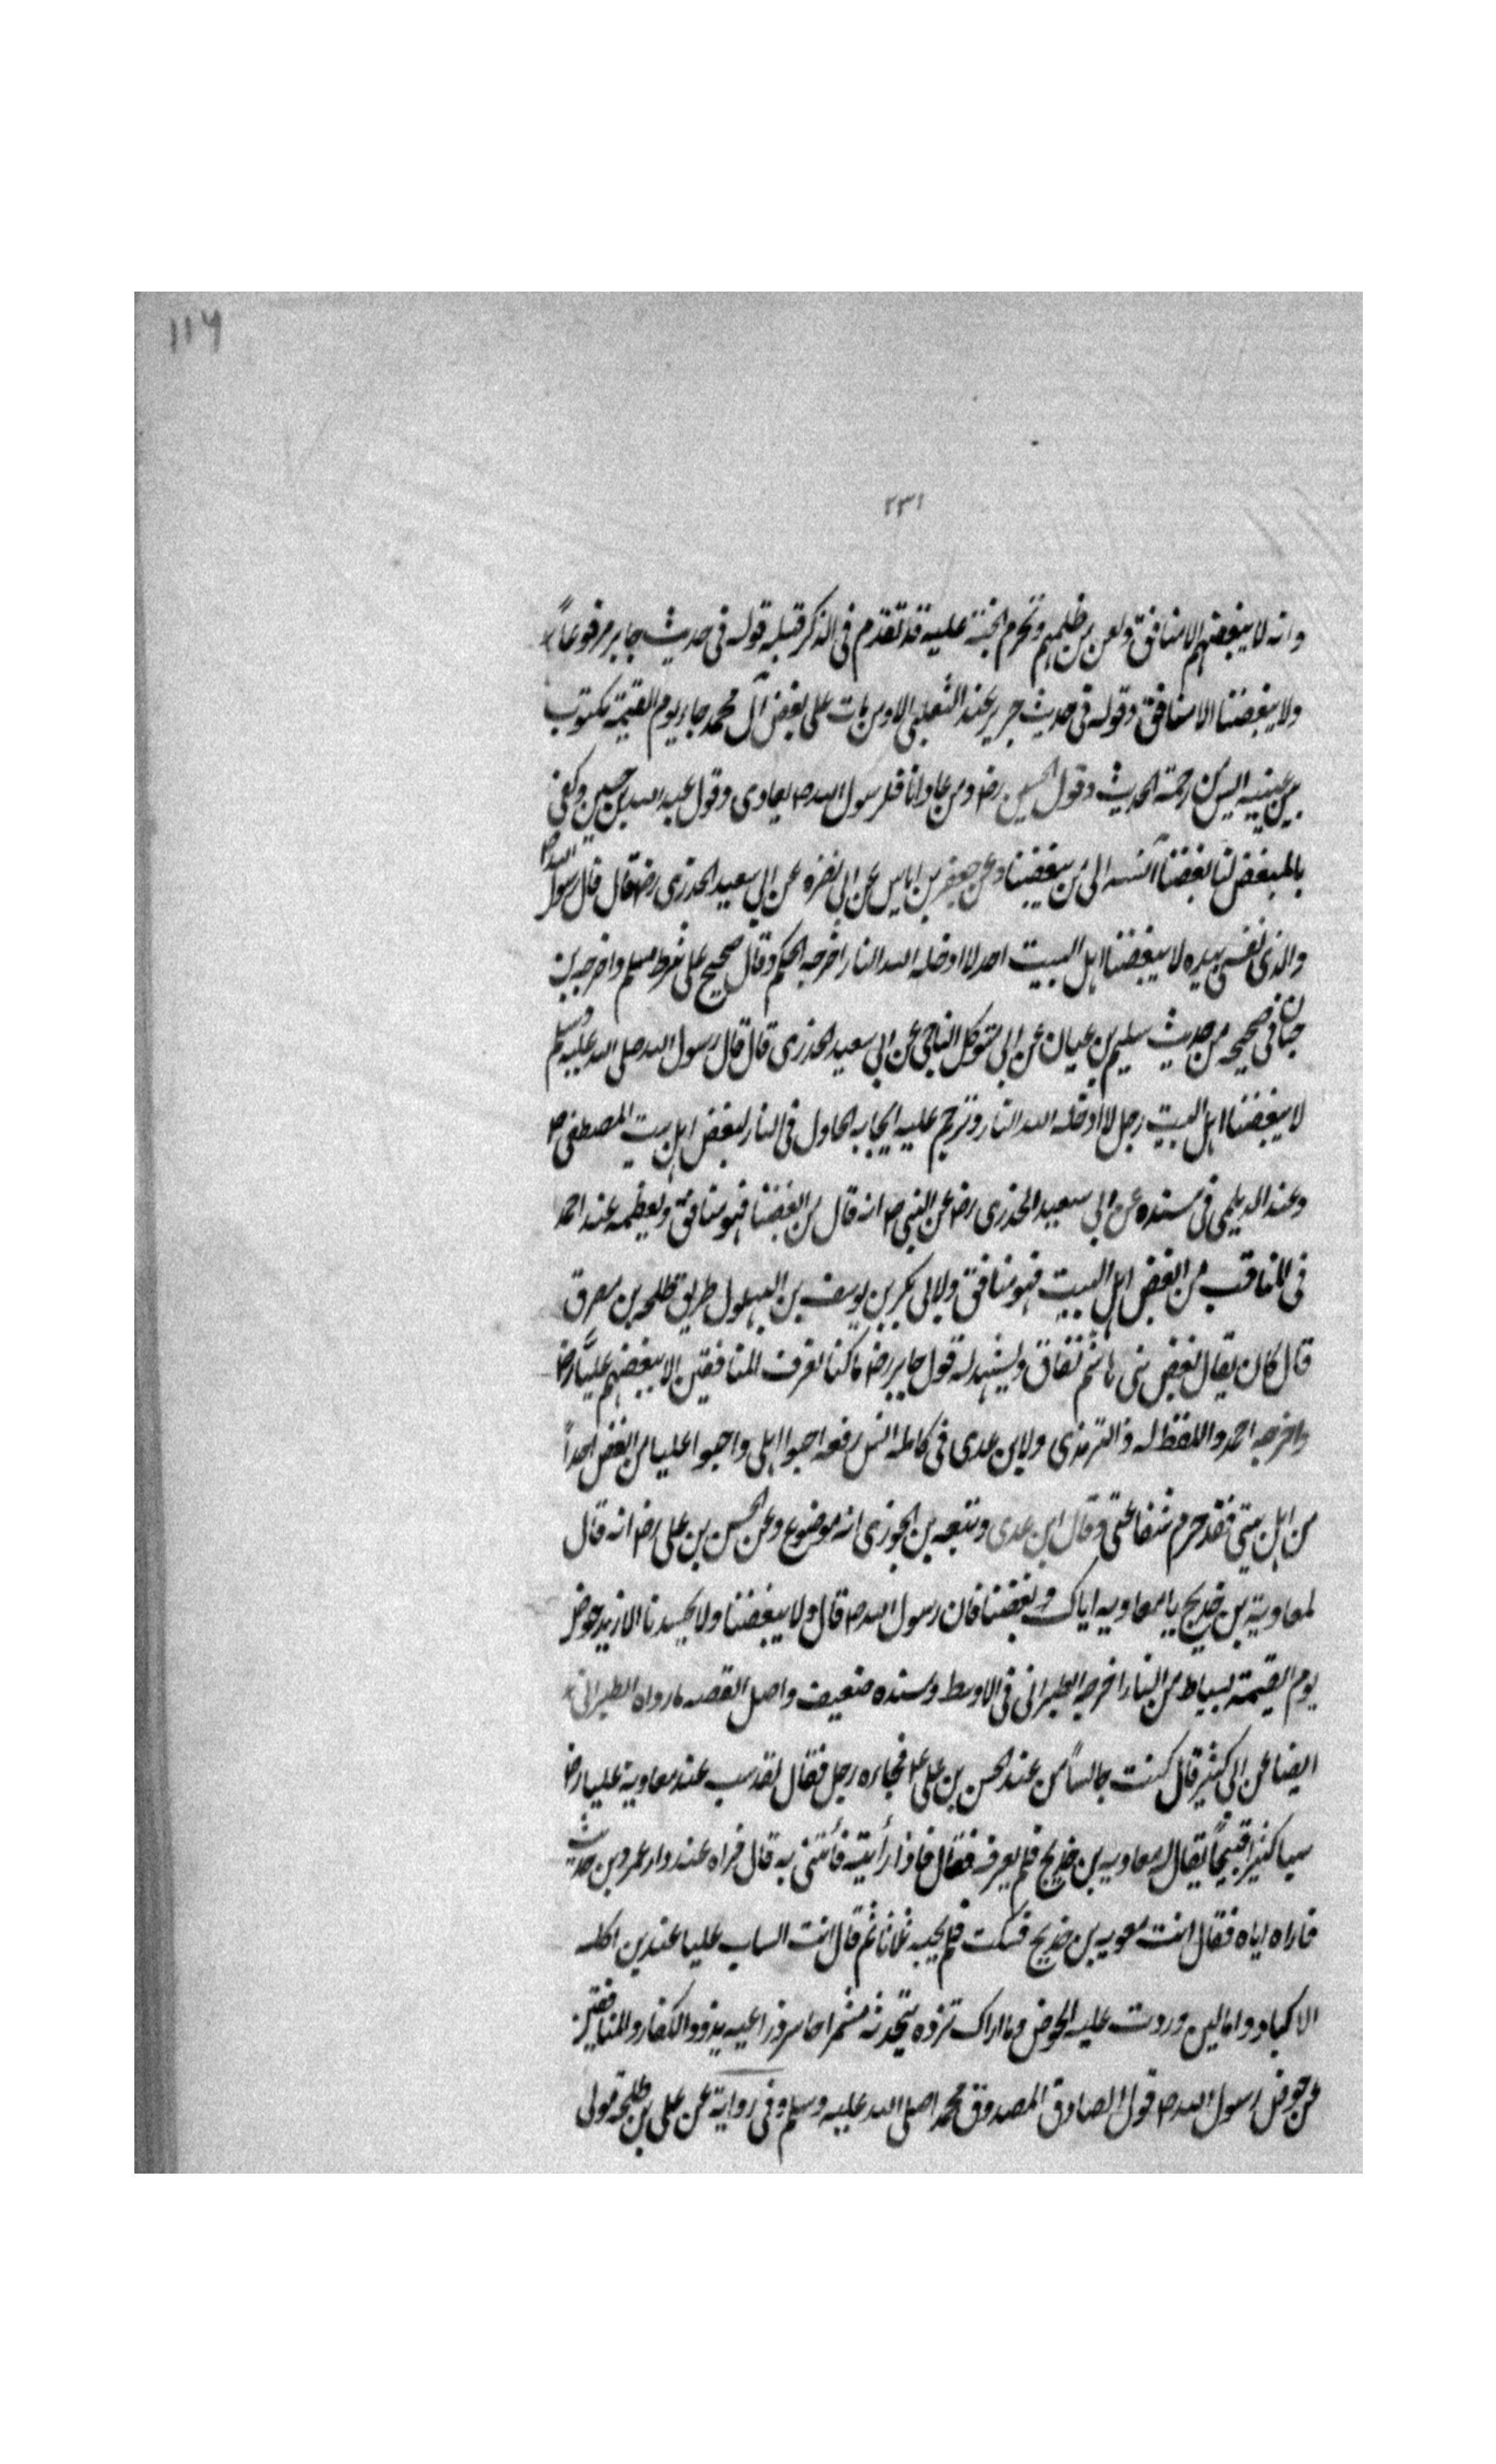 ۱۱۶
۲۳۱
وانه لا يبغضهم الا منافق ولعن من ظلمهم وتحرم الجنة عليه قد تقدم فى الذكر قبله قوله فى حديث جابر مرفوعاً
ولا يبغضنا الا منافق وقوله فى حديث جرير عند الثعلبى الا ومن مات على بغض آل محمد جاء يوم القيمة مكتوب
بين عينيه آيس من رحمة الحديث وقول الحسين رضـ ومن عادانا فلرسول الله صـ يعادى وقول عبد الله بن حسين وكفى
بالمبغض لنا بغضنا انسبه الى من يبغضنا وعن جعفر بن اياس عن ابى نضره عن ابى سعيد الخدرى رضـ قال قال رسول الله صـ
والذى نفسى بيده لا يبغضنا اهل البيت احد الا ادخله الله النار اخرجه الحكم وقال صحيح على شرط مسلم واخرجه بن
حبان فى صحيحه من حديث سليم بن عيان عن ابى متوكل الناجى عن ابى سعيد الخدرى قال قال رسول الله صلى الله عليه وسلم
لا يبغضنا اهل البيت رجل الا ادخله الله النار وترجم عليه ايجابه الخلول فى النار لبغض اهل بيت المصطفى صـ
وعند الديلمى فى مسنده عن ابى سعيد الخدرى رضـ عن النبى صـ انه قال من ابغضنا فهو منافق ولفظه عند احمد
فى المناقب من ابغض اهل البيت فهو منافق ولابى بكر بن يوسف بن البهلول طريق طلحه بن مصرف
قال كان يقال بغض بنى هاشم نفاق ويشهد له قول جابر رضـ ما كنا نعرف المنافقين الا ببغضهم علياً رضـ
واخرجه احمد واللفظ له والترمذى ولابن عدى فى كامله انس رفعه احبوا اهلى واحبوا عليا من ابغض احداً
من اهل بيتى فقد حرم شفاعتى وقال ابن عدى وتبعه بن الجوزى انه موضوع وعن الحسن بن على رضـ انه قال
لمعاوية بن خديج يا معاويه اياك وبغضنا فان رسول الله صـ قال ولا يبغضنا ولا يحسدنا الا ازيد حوض
يوم القيمة بسياط من النار اخرجه الطبرانى فى الاوسط وسنده ضعيف واصل القصه ما رواه الطبرانى
ايضا عن ابى كثير قال كنت جالساً من عند الحسن بن على عـ فجاءه رجل فقال لقد سب عند معاوية عليا رضـ
سبا كثيرا قبيحاً يقال له معاويه بن خديج فلم يعرفه فقال فاذا رأيته فأتنى به قال فراه عند دار عمرو بن حديث
فاراه اياه فقال انت معويه بن خديج فسكت فلم يجبه ثلاثا ثم قال انت الساب عليا عند بن اكله
الاكباد واما لين وردت عليه الحوض وما اراك ترده تجدنه مشمرا حاسرا ذراعيه يذود الكفار والمنافقين
عن حوض رسول الله صـ قول الصادق المصدوق محمد صلى الله عليه وسلم وفى رواية عن على بن طلحه قولى